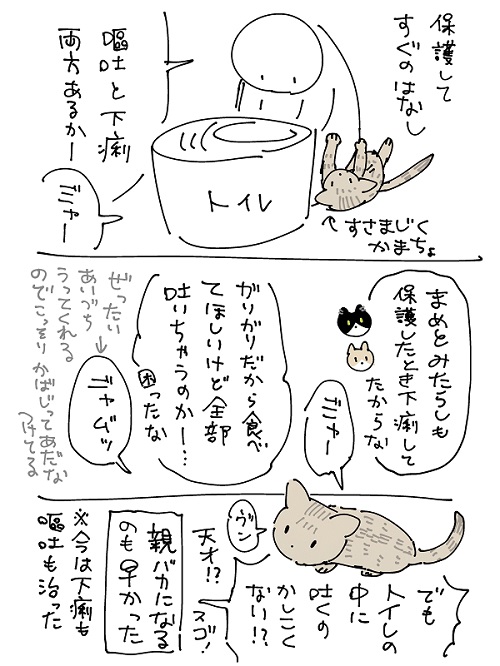 保護して
すぐのはなし
嘔吐と下痢
両方あるかー
トイレ
ニャー
すさまじく
かまちょ
まめとみたらしも
保護したとき下痢して
たからな
ニャー
がりがりだから食べ
てほしいけど全部
吐いちゃうのかー…
困ったな
ニャムッ
ぜったい
あいづち
うってくれる
のでこっそりかばじってあだな
つけてる
でも
トイレの
中に
吐くの
かしこく
ない!?
ウン
天才!?
スゴ!
親バカになる
のも早かった
※今は下痢も
嘔吐も治った